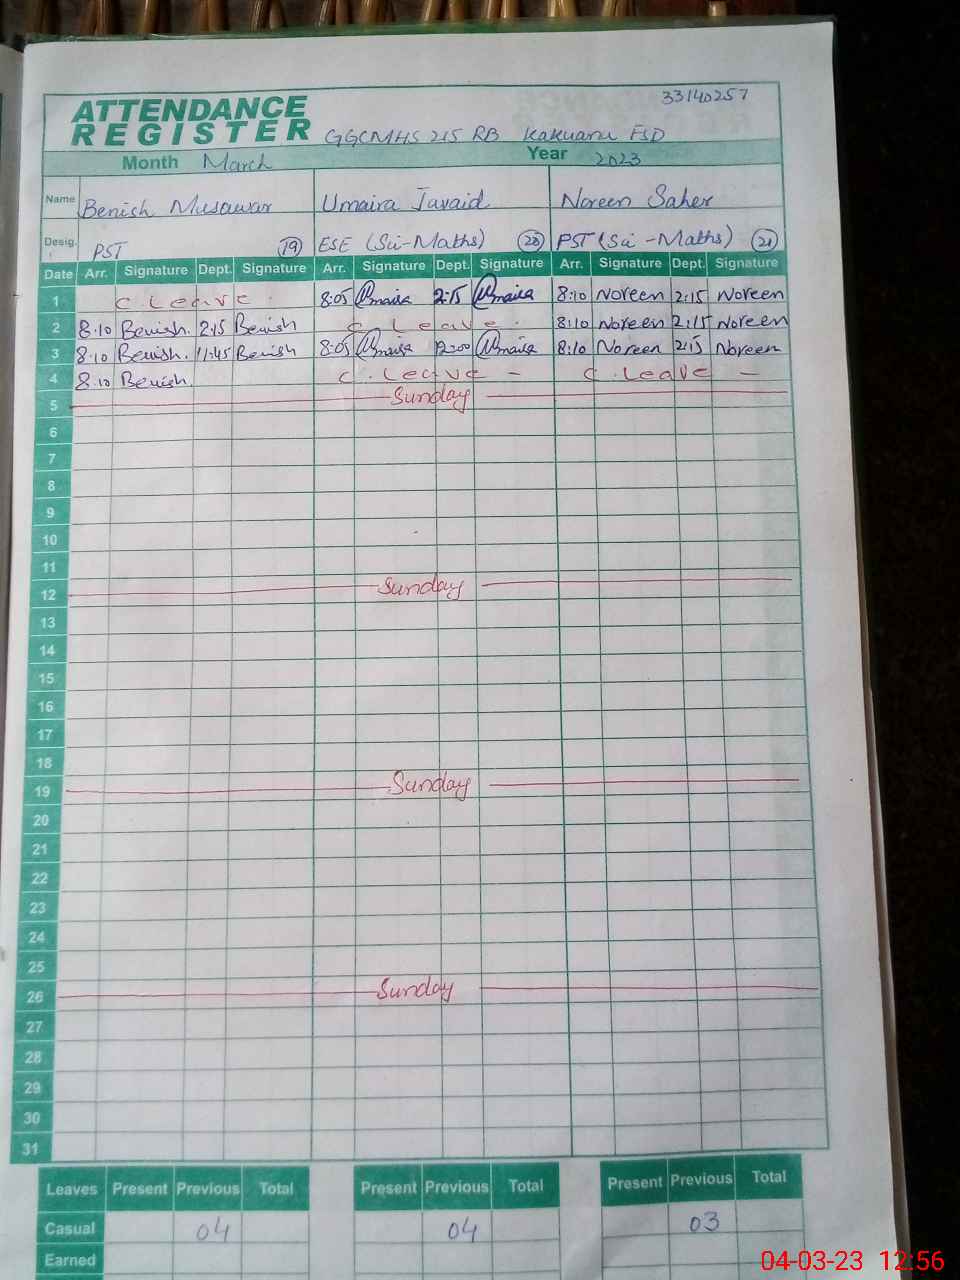 33140257
ATTENDANCE
REGISTER GGCMHS 215 RB Kakuana FSD
Month March Year 2023
Name Benish Musawar Umaira Javaid Noreen Saher
Desig. PST 19 ESE (Sci-Maths) 20 PST (Sci-Maths) 21
Date Arr. Signature Dept. Signature Arr. Signature Dept. Signature Arr. Signature Dept. Signature
1 C Leave 8:05 Umaira 2:15 Umaira 8:10 Noreen 2:15 Noreen
2 8:10 Benish 2:15 Benish C Leave 8:10 Noreen 2:15 Noreen
3 8:10 Benish 11:45 Benish 8:05 Umaira 12:00 Umaira 8:10 Noreen 2:15 Noreen
4 8:10 Benish C. Leave - C. Leave -
5 Sunday
6
7
8
9
10
11
12 Sunday
13
14
15
16
17
18
19 Sunday
20
21
22
23
24
25
26 Sunday
27
28
29
30
31
Leaves Present Previous Total Present Previous Total Present Previous Total
Casual 04 04 03
Earned
04-03-23 12:56